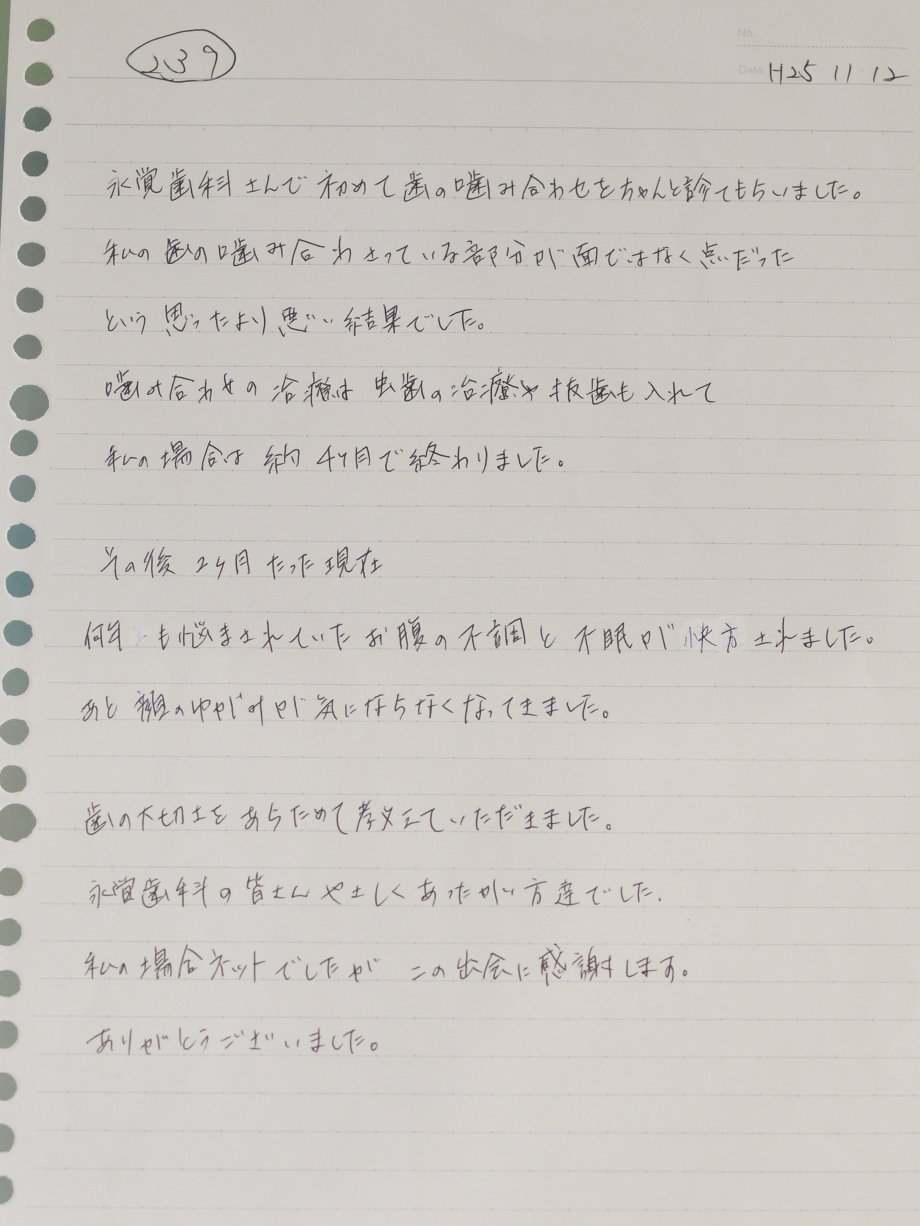 239
No.
Date H25 11 12
永覚歯科さんで初めて歯の噛み合わせをちゃんと診てもらいました。
私の歯の噛み合わさっている部分が面ではなく点だった
という思ったより悪い結果でした。
噛み合わせの治療は虫歯の治療や抜歯も入れて
私の場合は約4ヶ月で終わりました。
その後2ヶ月たった現在
何年も悩まされていたお腹の不調と不眠が快方されました。
あと顔のゆがみが気にならなくなってきました。
歯の大切さをあらためて教えていただきました。
永覚歯科の皆さんやさしくあったかい方達でした.
私の場合ネットでしたがこの出会に感謝します。
ありがとうございいました。